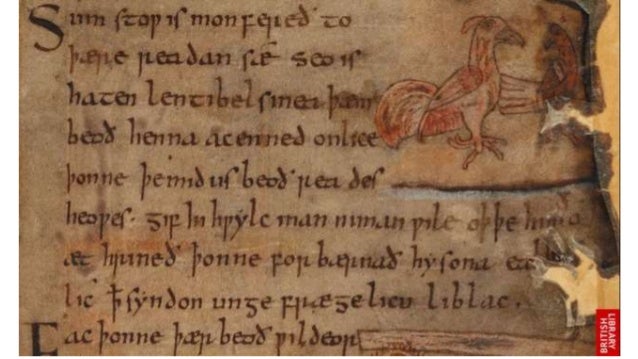 Sum stoƿ is mon fereð to
þære readan sæ seo is
haten lentibelsinea þær
beoð henna acenned onlice
þonne þe mid us beoð rea des
heoƿes· gif hi hƿylc man niman ƿile oþþe
æt hrineð þonne for bærnað hy sona
lic ꝥ syndon unge frægelicu liblac.
Eac þonne þær beoð ƿildeor
BRITISH
LIBRARY